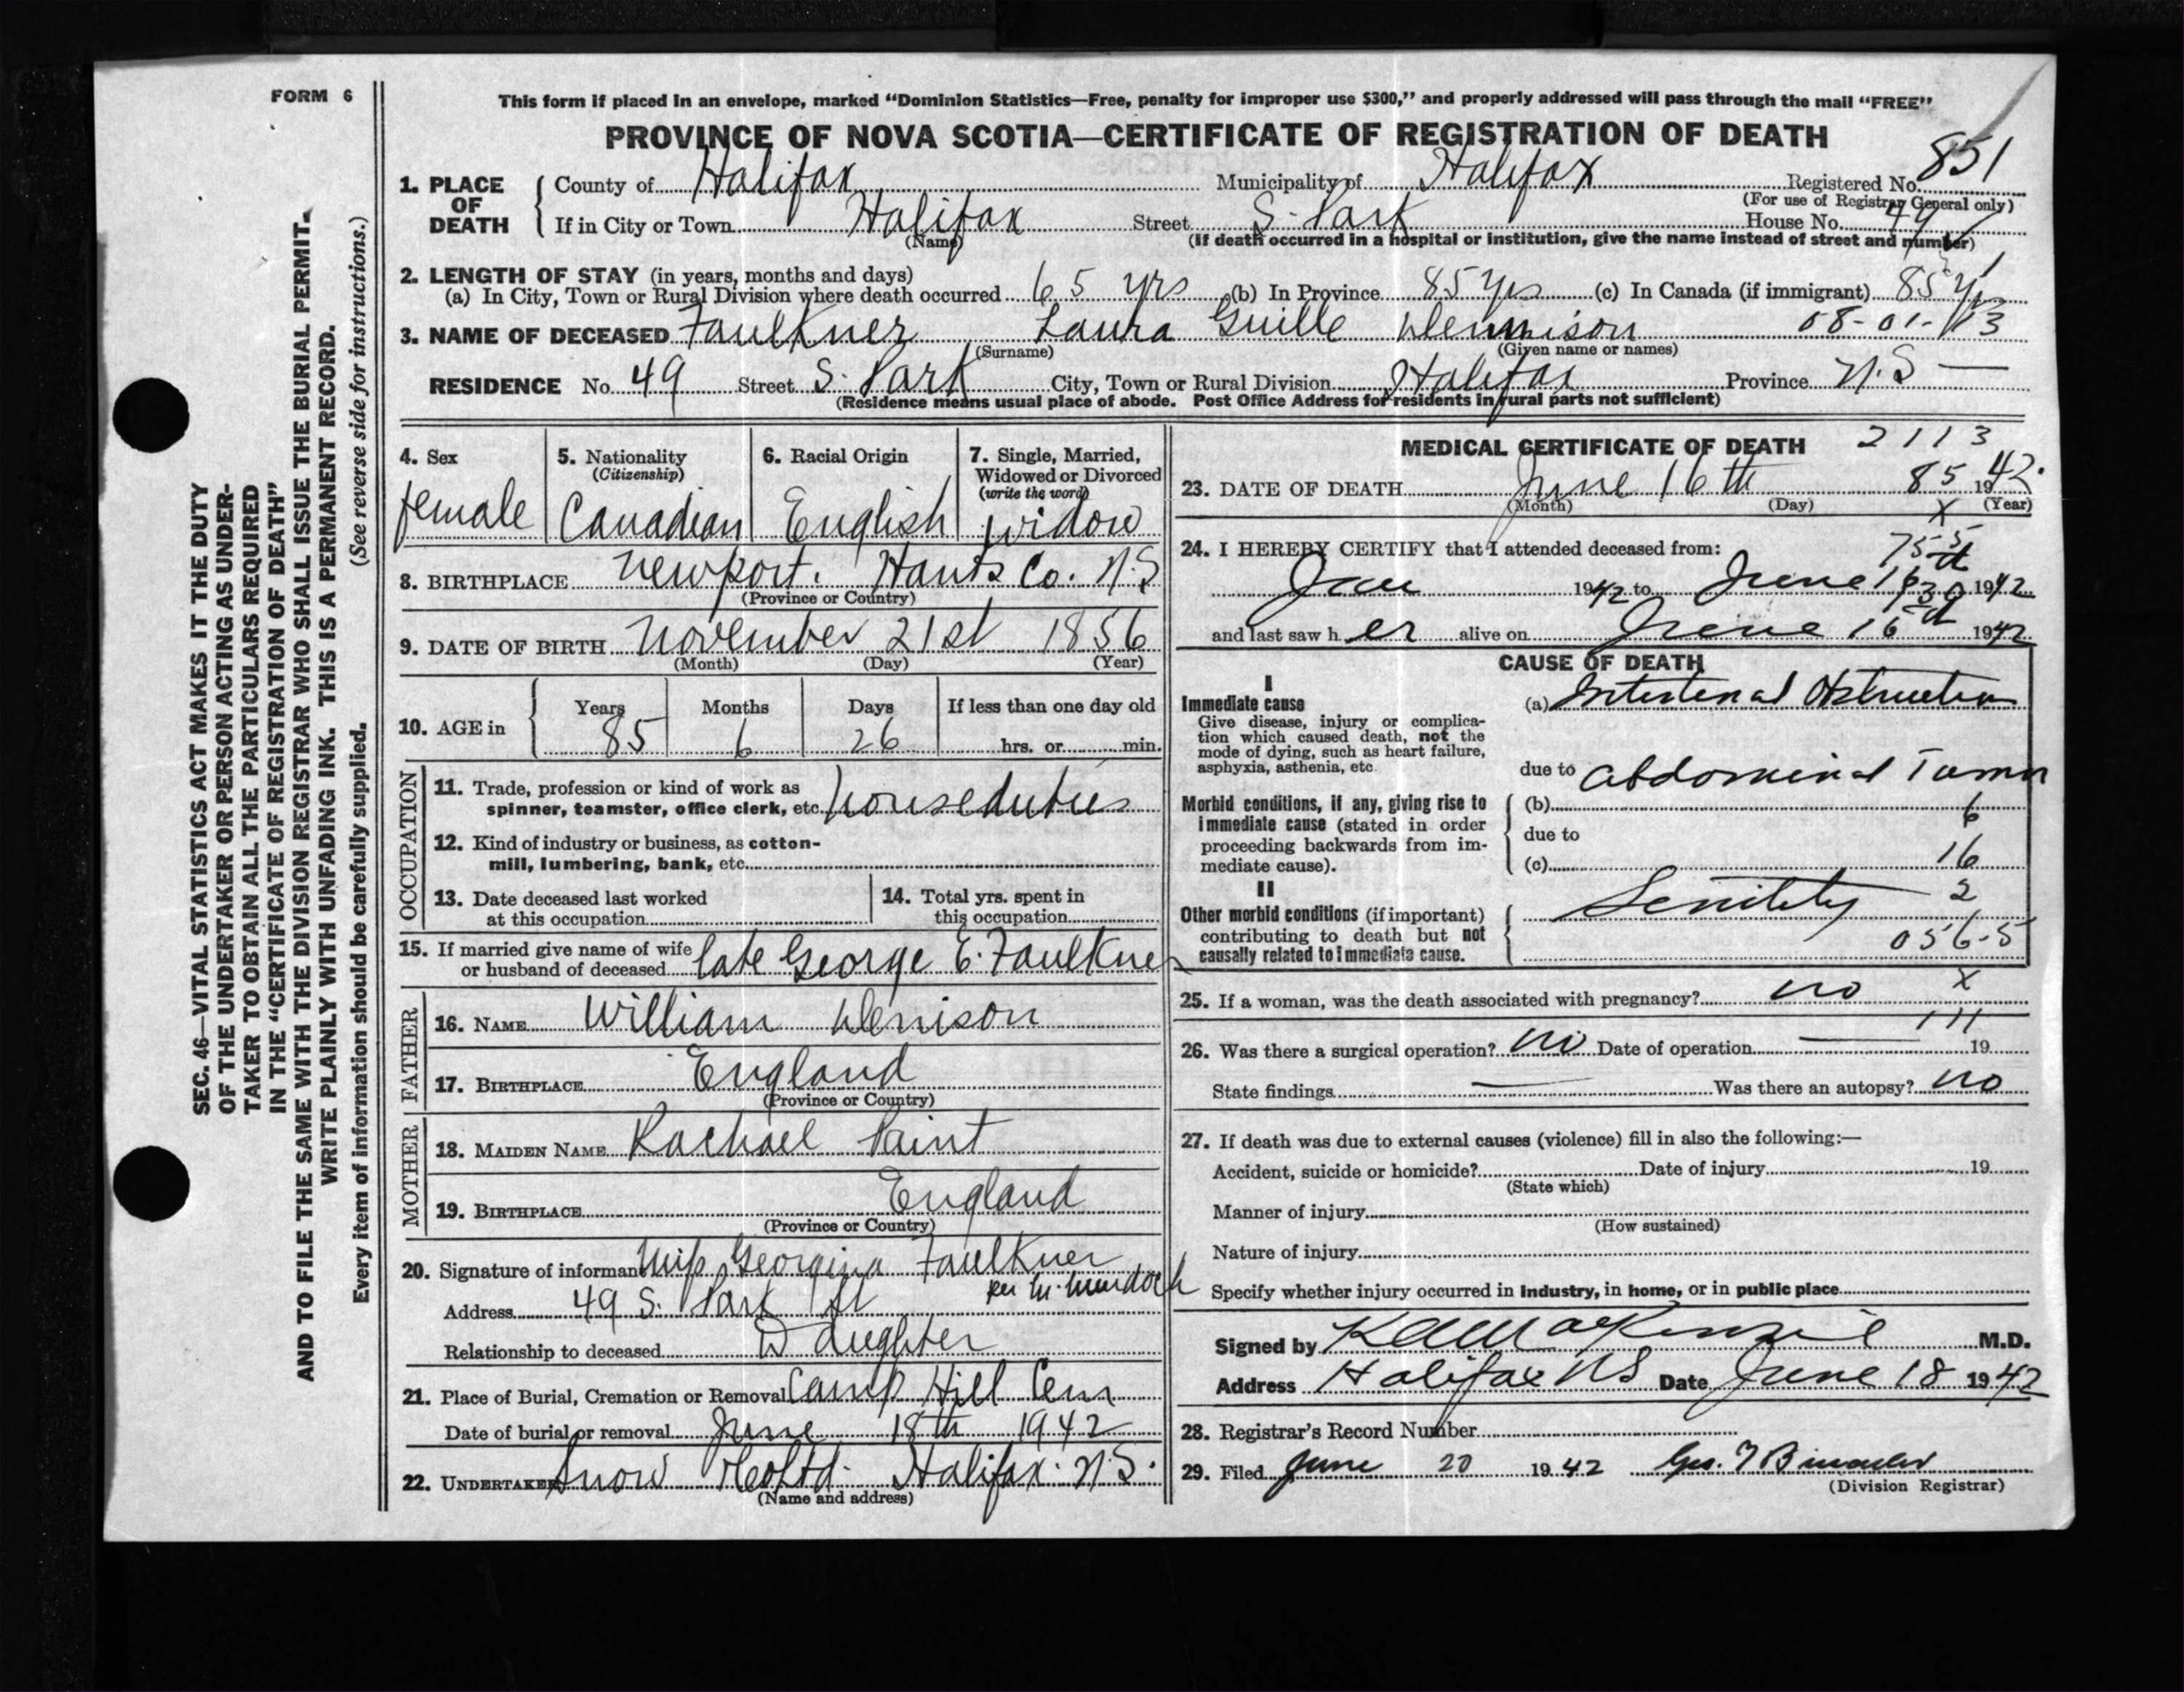 FORM 6
This form if placed in an envelope, marked “Dominion Statistics—Free, penalty for improper use $300,” and properly addressed will pass through the mail “FREE”
PROVINCE OF NOVA SCOTIA—CERTIFICATE OF REGISTRATION OF DEATH
851
1. PLACE OF DEATH County of Halifax Municipality of Halifax Registered No.
(For use of Registrar General only)
If in City or Town Halifax Street S. Park House No. 49
(Name) (If death occurred in a hospital or institution, give the name instead of street and number)
2. LENGTH OF STAY (in years, months and days)
(a) In City, Town or Rural Division where death occurred 65 yrs (b) In Province 85 yrs (c) In Canada (if immigrant) 85 yrs
3. NAME OF DECEASED Faulkner Laura Guille Dennison 08-01-113
(Surname) (Given name or names)
RESIDENCE No. 49 Street S. Park City, Town or Rural Division Halifax Province N.S —
(Residence means usual place of abode. Post Office Address for residents in rural parts not sufficient)
4. Sex
female
5. Nationality
(Citizenship)
Canadian
6. Racial Origin
English
7. Single, Married,
Widowed or Divorced
(write the word)
widow
8. BIRTHPLACE Newport. Hants Co. N.S
(Province or Country)
9. DATE OF BIRTH November 21st 1856
(Month) (Day) (Year)
10. AGE in Years Months Days If less than one day old
85 6 26 hrs. or min.
OCCUPATION
11. Trade, profession or kind of work as
spinner, teamster, office clerk, etc. houseduties
12. Kind of industry or business, as cotton-
mill, lumbering, bank, etc.
13. Date deceased last worked
at this occupation
14. Total yrs. spent in
this occupation
15. If married give name of wife
or husband of deceased late George E. Faulkner
FATHER
16. NAME William Denison
17. BIRTHPLACE England
(Province or Country)
MOTHER
18. MAIDEN NAME Rachael Paint
19. BIRTHPLACE England
(Province or Country)
20. Signature of informant Miss Georgina Faulkner
per M. Murdoch
Address 49 S. Park St
Relationship to deceased Daughter
21. Place of Burial, Cremation or Removal Camp Hill Cem
Date of burial or removal June 18th 1942
22. UNDERTAKER Snow & Co Ltd. Halifax. N.S.
(Name and address)
MEDICAL CERTIFICATE OF DEATH 2113
23. DATE OF DEATH June 16th 85 1942.
(Month) (Day) x (Year)
24. I HEREBY CERTIFY that I attended deceased from:
755
Jan 1942 to June 16th 1942
30
and last saw her alive on June 16th 1942
CAUSE OF DEATH
I
Immediate cause
Give disease, injury or complica-
tion which caused death, not the
mode of dying, such as heart failure,
asphyxia, asthenia, etc.
(a) Intestinal Obstruction
due to Abdominal Tumor
Morbid conditions, if any, giving rise to
immediate cause (stated in order
proceeding backwards from im-
mediate cause).
(b) 6
due to
(c) 16
II
Other morbid conditions (if important)
contributing to death but not
causally related to immediate cause.
Senility 2
056-5
25. If a woman, was the death associated with pregnancy? no x
111
26. Was there a surgical operation? no Date of operation — 19
State findings — Was there an autopsy? no
27. If death was due to external causes (violence) fill in also the following:—
Accident, suicide or homicide? Date of injury 19
(State which)
Manner of injury
(How sustained)
Nature of injury
Specify whether injury occurred in Industry, in home, or in public place
Signed by K A MacKenzie M.D.
Address Halifax NS Date June 18 1942
28. Registrar's Record Number
29. Filed June 20 1942 Geo.
(Division Registrar)
SEC. 46—VITAL STATISTICS ACT MAKES IT THE DUTY
OF THE UNDERTAKER OR PERSON ACTING AS UNDER-
TAKER TO OBTAIN ALL THE PARTICULARS REQUIRED
IN THE “CERTIFICATE OF REGISTRATION OF DEATH”
AND TO FILE THE SAME WITH THE DIVISION REGISTRAR WHO SHALL ISSUE THE BURIAL PERMIT.
WRITE PLAINLY WITH UNFADING INK. THIS IS A PERMANENT RECORD.
Every item of information should be carefully supplied. (See reverse side for instructions.)